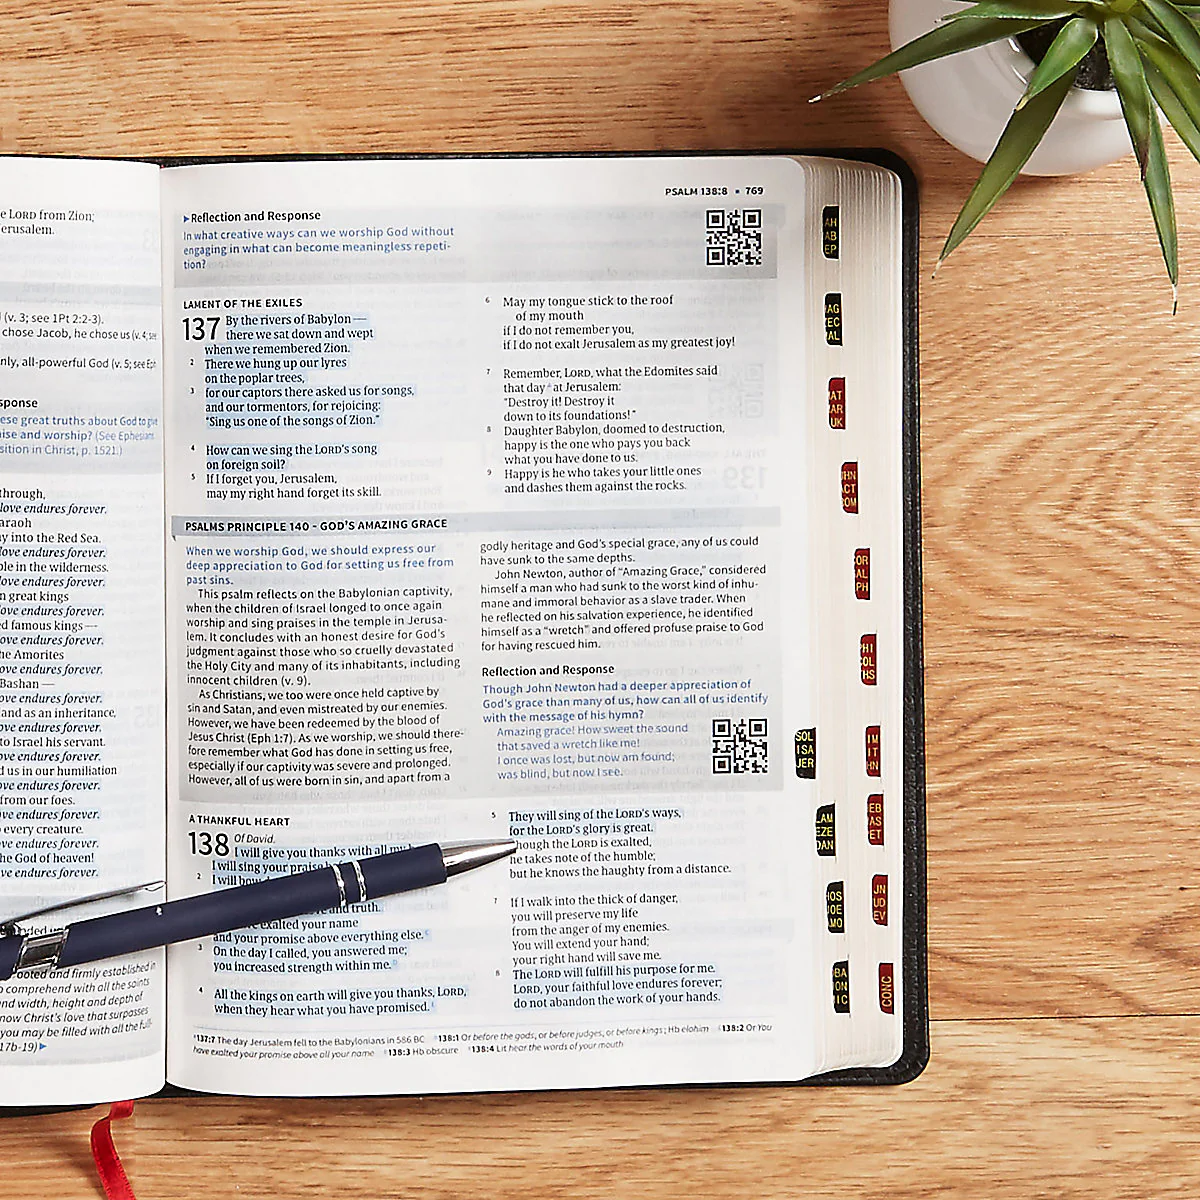 e LORD from Zion;
erusalem.
(v. 3; see 1Pt 2:2-3).
chose Jacob, he chose us (v. 4; see
nly, all-powerful God (v. 5; see Eph
sponse
ese great truths about God to give
ise and worship? (See Ephesians
sition in Christ, p. 1521.)
through,
love endures forever.
araoh
y into the Red Sea.
love endures forever.
ple in the wilderness.
love endures forever.
n great kings
love endures forever.
ed famous kings —
love endures forever.
he Amorites
love endures forever.
Bashan —
love endures forever.
and as an inheritance,
love endures forever.
to Israel his servant.
love endures forever.
d us in our humiliation
love endures forever.
from our foes.
love endures forever.
every creature.
love endures forever.
he God of heaven!
love endures forever.
ooted and firmly established in
comprehend with all the saints
nd width, height and depth of
now Christ's love that surpasses
you may be filled with all the full-
17b-19)▶
PSALM 138:8 ▪ 769
▶Reflection and Response
In what creative ways can we worship God without
engaging in what can become meaningless repeti-
tion?
LAMENT OF THE EXILES
137 By the rivers of Babylon —
there we sat down and wept
when we remembered Zion.
2 There we hung up our lyres
on the poplar trees,
3 for our captors there asked us for songs,
and our tormentors, for rejoicing:
"Sing us one of the songs of Zion."
4 How can we sing the LORD's song
on foreign soil?
5 If I forget you, Jerusalem,
may my right hand forget its skill.
6 May my tongue stick to the roof
of my mouth
if I do not remember you,
if I do not exalt Jerusalem as my greatest joy!
7 Remember, LORD, what the Edomites said
that day at Jerusalem:
"Destroy it! Destroy it
down to its foundations!"
8 Daughter Babylon, doomed to destruction,
happy is the one who pays you back
what you have done to us.
9 Happy is he who takes your little ones
and dashes them against the rocks.
PSALMS PRINCIPLE 140 - GOD'S AMAZING GRACE
When we worship God, we should express our
deep appreciation to God for setting us free from
past sins.
This psalm reflects on the Babylonian captivity,
when the children of Israel longed to once again
worship and sing praises in the temple in Jerusa-
lem. It concludes with an honest desire for God's
judgment against those who so cruelly devastated
the Holy City and many of its inhabitants, including
innocent children (v. 9).
As Christians, we too were once held captive by
sin and Satan, and even mistreated by our enemies.
However, we have been redeemed by the blood of
Jesus Christ (Eph 1:7). As we worship, we should there-
fore remember what God has done in setting us free,
especially if our captivity was severe and prolonged.
However, all of us were born in sin, and apart from a
godly heritage and God's special grace, any of us could
have sunk to the same depths.
John Newton, author of "Amazing Grace," considered
himself a man who had sunk to the worst kind of inhu-
mane and immoral behavior as a slave trader. When
he reflected on his salvation experience, he identified
himself as a "wretch" and offered profuse praise to God
for having rescued him.
Reflection and Response
Though John Newton had a deeper appreciation of
God's grace than many of us, how can all of us identify
with the message of his hymn?
Amazing grace! How sweet the sound
that saved a wretch like me!
I once was lost, but now am found;
was blind, but now I see.
A THANKFUL HEART
138 Of David.
I will give you thanks with all my
I will sing your praise
2 I will bow
and truth.
exalted your name
and your promise above everything else.
3 On the day I called, you answered me;
you increased strength within me.
4 All the kings on earth will give you thanks, LORD,
when they hear what you have promised.
5 They will sing of the LORD's ways,
for the LORD's glory is great.
though the LORD is exalted,
he takes note of the humble;
but he knows the haughty from a distance.
7 If I walk into the thick of danger,
you will preserve my life
from the anger of my enemies.
You will extend your hand;
your right hand will save me.
8 The LORD will fulfill his purpose for me.
LORD, your faithful love endures forever;
do not abandon the work of your hands.
137:7 The day Jerusalem fell to the Babylonians in 586 BC 138:1 Or before the gods, or before judges, or before kings; Hb elohim 138:2 Or You
have exalted your promise above all your name 138:3 Hb obscure 138:4 Lit hear the words of your mouth
AH
AB
EP
AG
ZEC
AL
AT
AR
UK
JHN
ACT
ROM
OR
AL
PH
PHI
COL
THS
SOL
ISA
JER
IM
IT
HN
LAM
EZE
DAN
EB
AS
ET
HOS
JOE
AMO
JN
UD
EV
OBA
JON
MIC
CONC